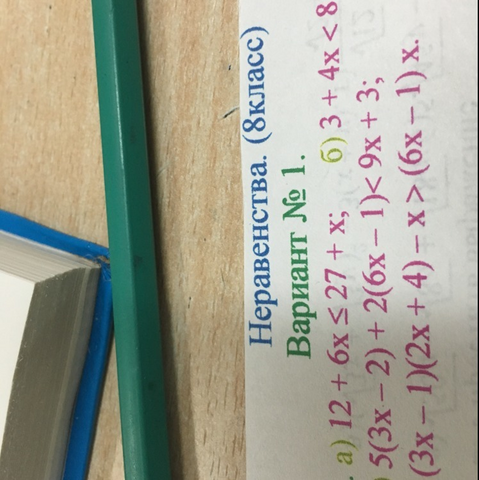 Неравенства. (8класс)
Вариант № 1.
а) 12 + 6x ≤ 27 + x; б) 3 + 4x < 8
) 5(3x – 2) + 2(6x – 1)< 9x + 3;
(3x – 1)(2x + 4) – x > (6x – 1) x.